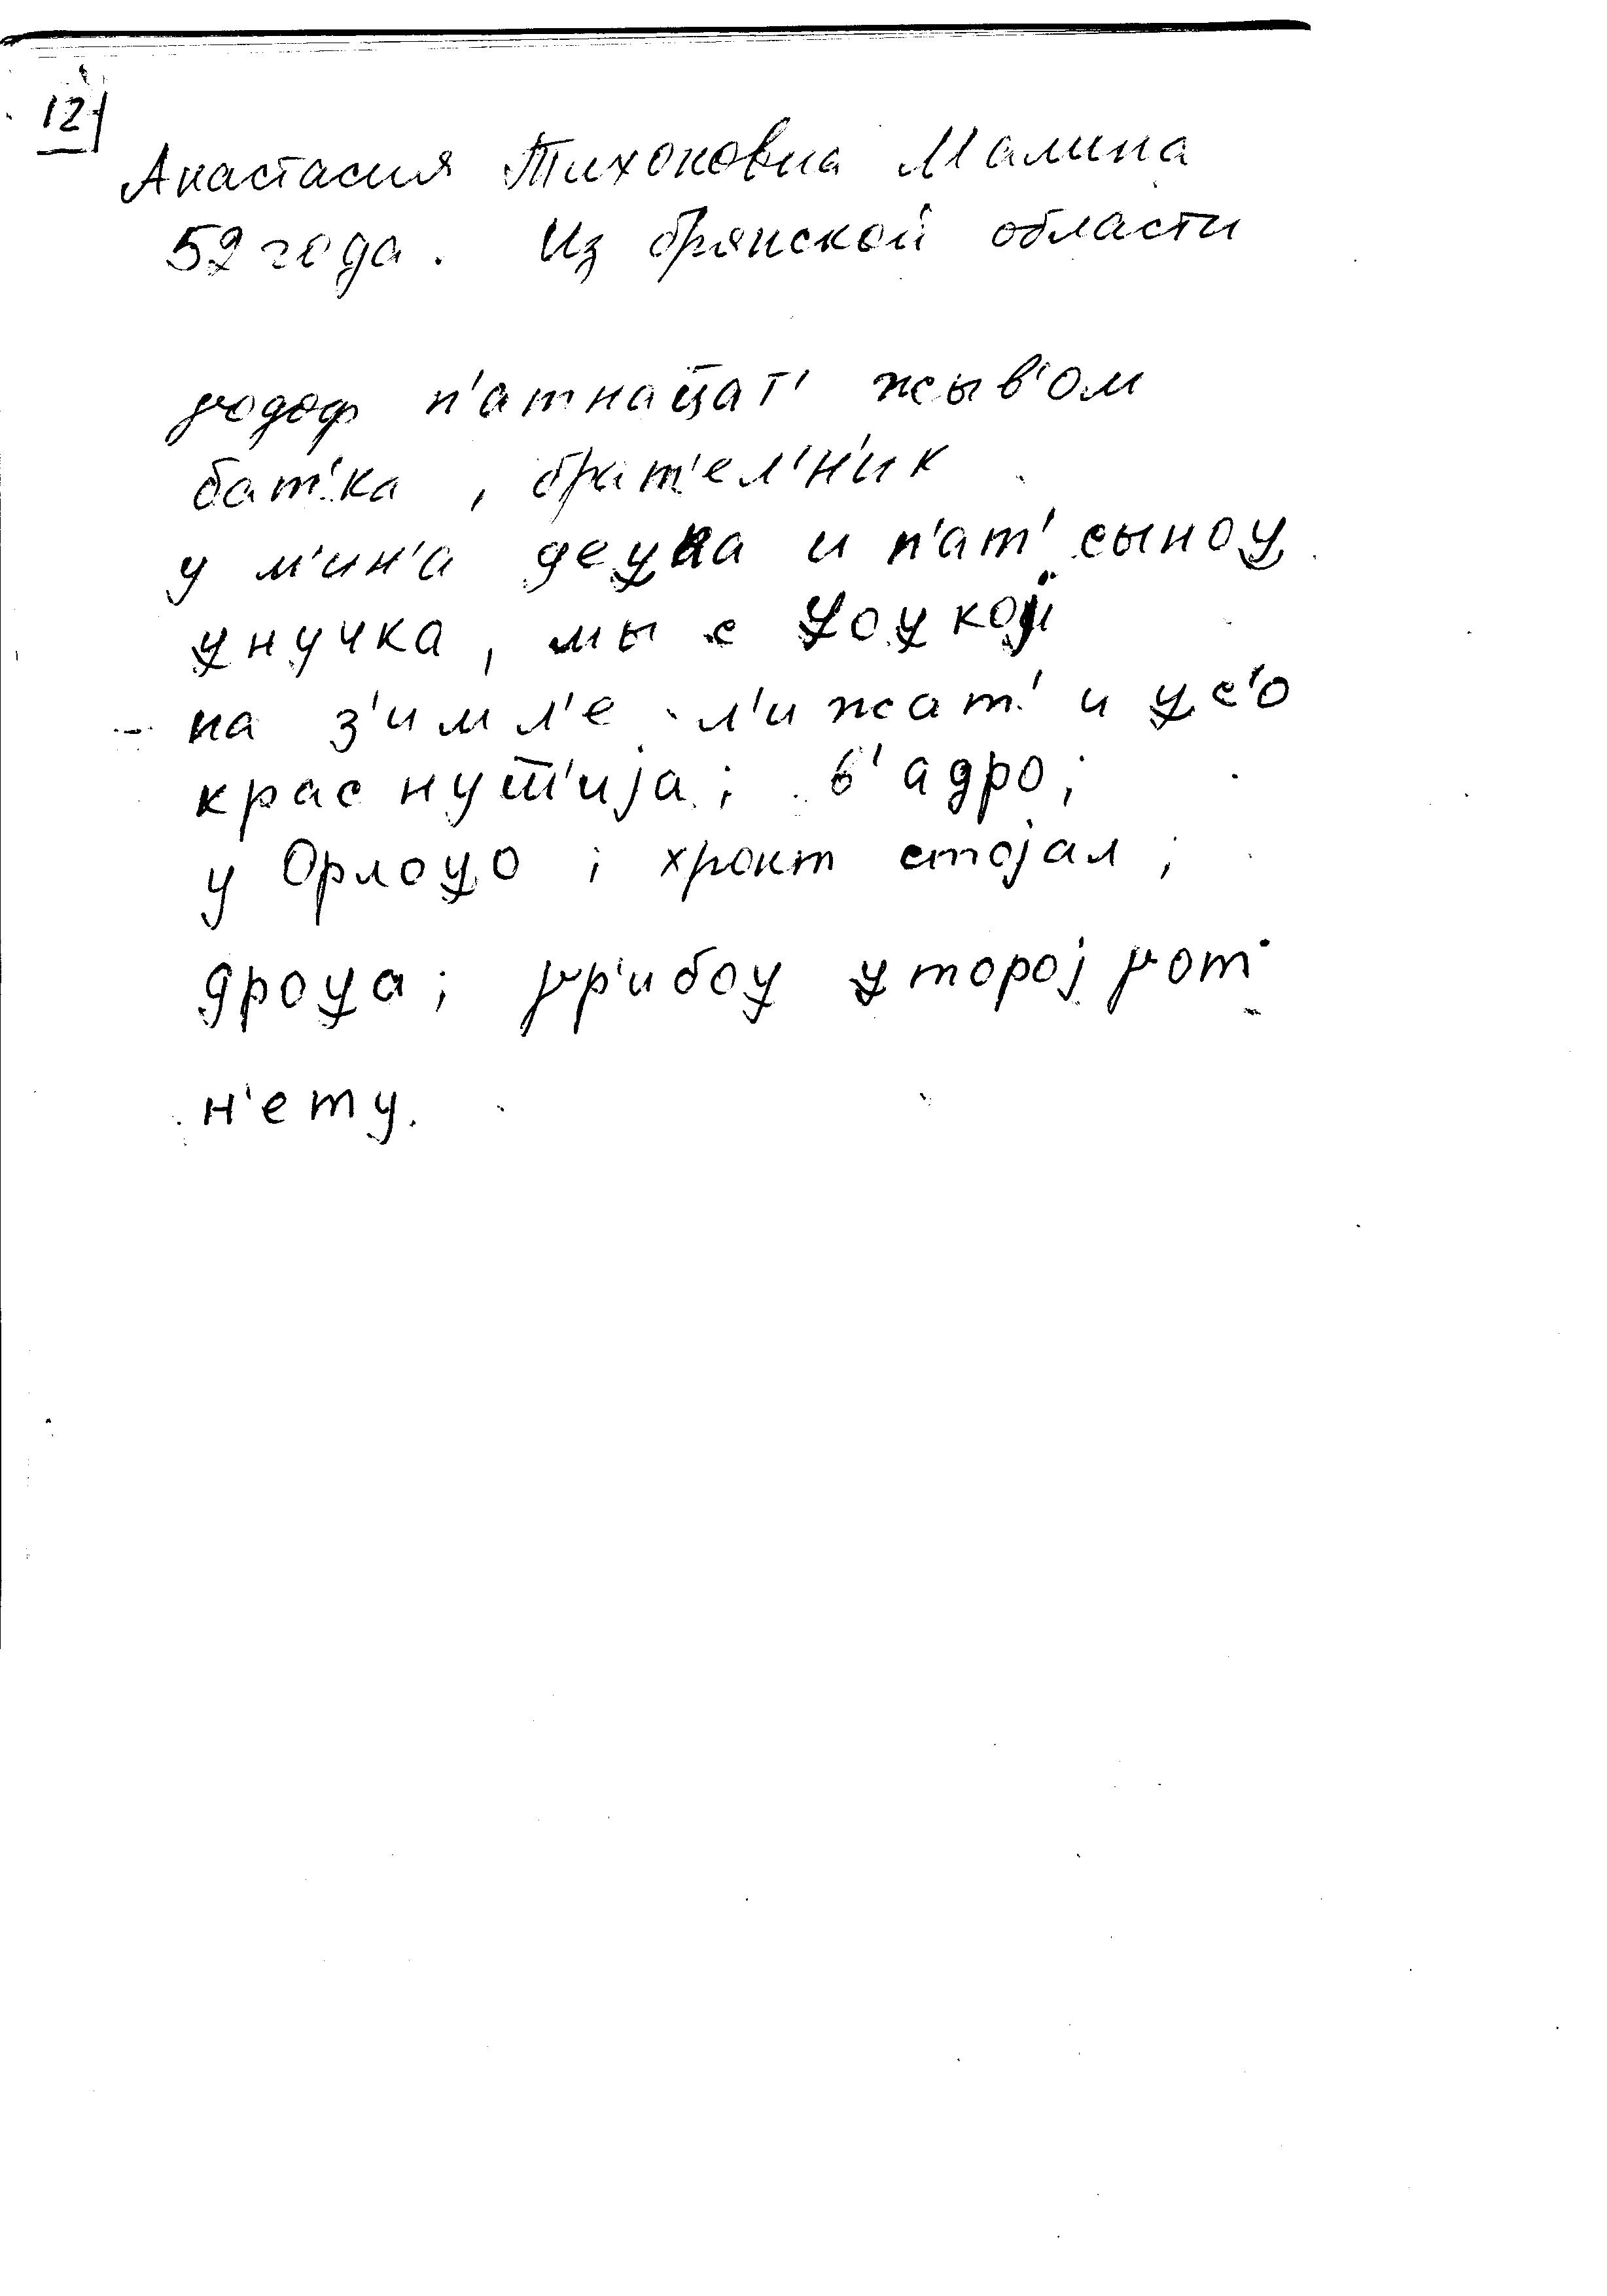 12)
Анастасия Тихоновна Малина
52 года. Из брянской области
γодоф п'атнац̄ат' жыв'ом
бат'ка, брат'ел'н'ик
у м'ин'а деу̯ка и п'ат' сыноу̯
у̯нучка, мы с У̯оу̯кој
на з'имл'е л'ижат' и у̯с'о
краснут̄'ија; в'адро;
у Орлоу̯о; хронт стојал;
дроу̯а; γр'ибоу̯ у̯торој γот
н'ету.